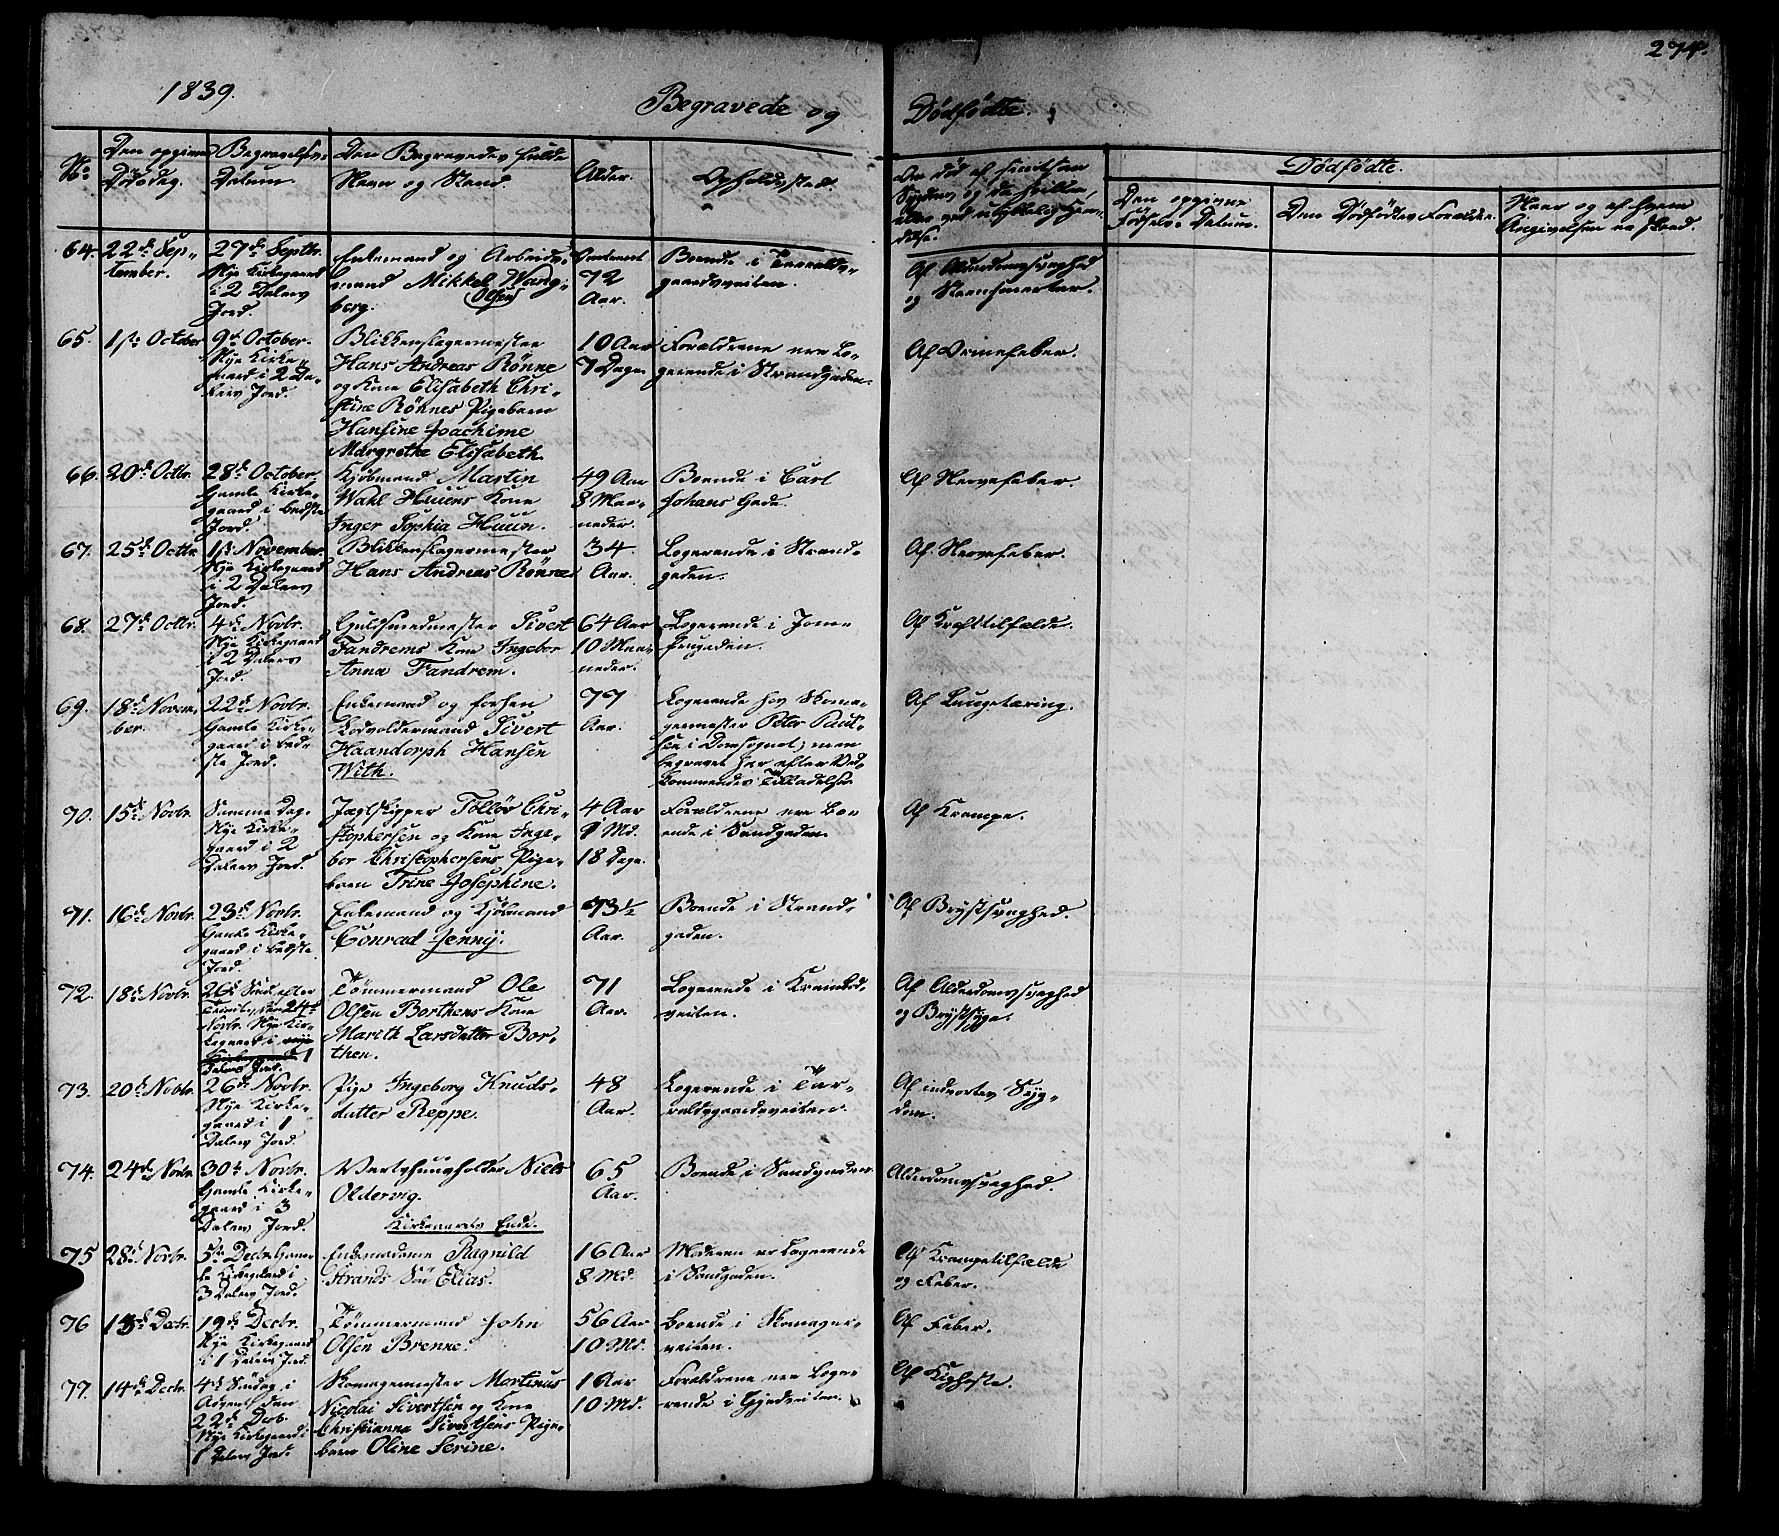 274.
1839.
Begravede og Dødfødte.
No
Den opgivne Dødsdag.
Begravelses Datum.
Den Begravedes fulde Navn og Stand.
Alder.
Opholdssted.
Dødfødte.
Den opgivne Fødsels-Datum.
Den Dødfødtes Forældre.
Naar og af hvem Angivelsen er skeed.
64.
22de September.
27de Septbr. Nye Kirkegaard i 2 Dalers Jord.
Enkemand og Arbeidsmand Mikkel Olsen Wangberg.
72 Aar.
Boende i gaardsveiten.
Af Alderdomssvaghed og Steensmerter.
65.
1ste October
9de October. Nye Kirkegaard i 2 Dalers Jord.
Blikkenslagermester
Hans Andreas Rønne
og Kone Elisabeth Christine Rønnes Pigebarn
Hansine Joachime
Margrethe Elisabeth.
10 Aar
7 Dage.
Forældrene ere Logerende i Strandgaden.
Af Ormefeber.
66.
20de Octbr.
28de October, Gamle Kirkegaard i bedste Jord.
Kjøbmand Martin
Wahl Huuns Kone
Inger Sophia Huun.
49 Aar
8 Maaneder.
Boende i Carl Johans Gade.
Af Nervefeber.
67.
25de Octbr.
1ste November. Nye Kirkegaard i 2 Dalers Jord.
Blikkenslagermester
Hans Andreas Rønne
34 Aar.
Logerende i Strandgaden.
Af Nervefeber.
68.
27de Octbr.
4de Novbr. Nye Kirkegaard i 2 Dalers Jord.
Guldsmedmester Sivert
Fandrems Kone Ingebor
Anna Fandrem.
64 Aar
10 Maaneder.
Logerende i Jomfrugaden.
Af Krafttilfælde.
69.
18de November.
22de Novbr. Gamle Kirkegaard i bedste Jord.
Enkemand og forhen
Sivert
Haandorph Hansen
With.
77 Aar.
Logerende hos Skomagermester Peter Paulsen i Domsognet, men begravet her efter Vedkommendes Tilladelse
Af Lungetæring.
70.
15de Novbr.
Samme Dag. Nye Kirkegaard i 2 Dalers Jord.
Jagtskipper Tolløv Christophersen og Kone Ingebor Christophersens Pigebarn Trine Josephine.
4 Aar
9 Md.
18 Dage.
Forældrene ere Boende i Sandgaden.
Af Krampe.
71.
16de Novbr.
23de Novbr. Gamle Kirkegaard i bedste Jord.
Enkemand og Kjøbmand
Conrad Jenny.
73½ Aar.
Boende i Strandgaden.
Af Brystsvaghed.
72.
18de Novbr.
26de Novbr. Nye Kirkegaard i 1 Dalers Jord.
Tømmermand Ole
Olsen Borthens Kone
Marith Larsdatter Borthen.
71 Aar.
Logerende i
Af Alderdomssvaghed og Brystsyge.
73.
20de Novbr.
26de Novbr. Nye Kirkegaard i 1 Dalers Jord.
Pige Ingeborg Knudsdatter Reppe.
48 Aar.
Logerende i
Af indvortes Sygdom.
74.
24de Novbr.
30te Novbr. Gamle Kirkegaard i 3 Dalers Jord.
Vertshuusholder Niels
Oldervig.
Kirkeaarets Ende.
65 Aar.
Boende i Sandgaden.
Alderdomssvaghed.
75
28de Novbr.
5te Decbr. Gamle Kirkegaard i 3 Dalers Jord.
Enkemadame Ragnild
Strands Søn Elias.
16 Aar
8 Md.
Moderen er Logerende i Sandgaden.
Af Krampetilfælde og Feber.
76
13de Decbr.
19de Decbr. Nye Kirkegaard i 1 Dalers Jord.
Tømmermand John
Olsen Brenne.
56 Aar
10 Md.
Boende i Skomagerveiten.
Af Feber.
77.
14de Decbr.
4de Søndag i Advent den 22de Decbr. Nye Kirkegaard i 1 Dalers Jord.
Skomagermester Martinus
Nicolai Sivertsen og Kone
Christianna Sivertsens Pigebarn Oline Serine.
1 Aar
10 Md.
Forældrene ere Logerende i
Af Kighoste.